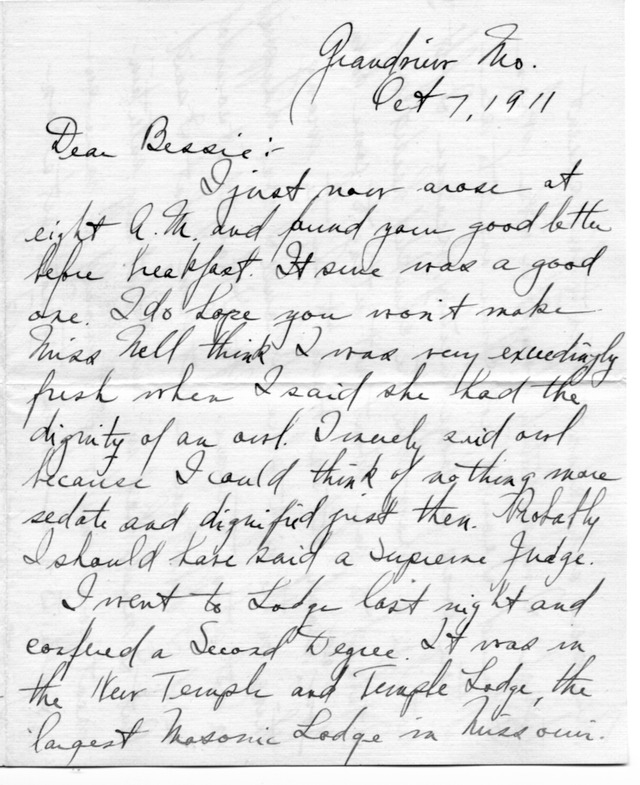 Grandview Mo.
Oct 7, 1911
Dear Bessie:-
I just now arose at
eight A.M. and found your good letter
before breakfast. It sure was a good
one. I do hope you won't make
Miss Nell think I was very exceedingly
fresh when I said she had the
dignity of an owl. I merely said owl
because I could think of nothing more
sedate and dignified just then. Probably
I should have said a Supreme Judge.
I went to Lodge last night and
confered a Second Degree. It was in
the New Temple and Temple Lodge, the
largest Masonic Lodge in Missouri.